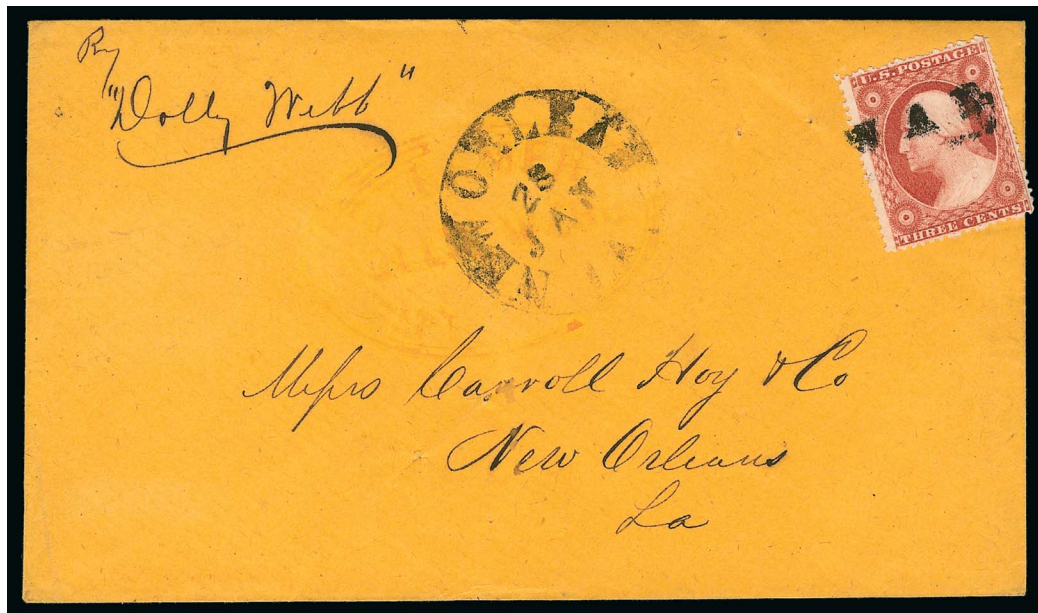 By
"Dolly Webb"
U.S. POSTAGE
THREE CENTS
28
JAN
Messrs Carroll Hoy & Co
New Orleans
La